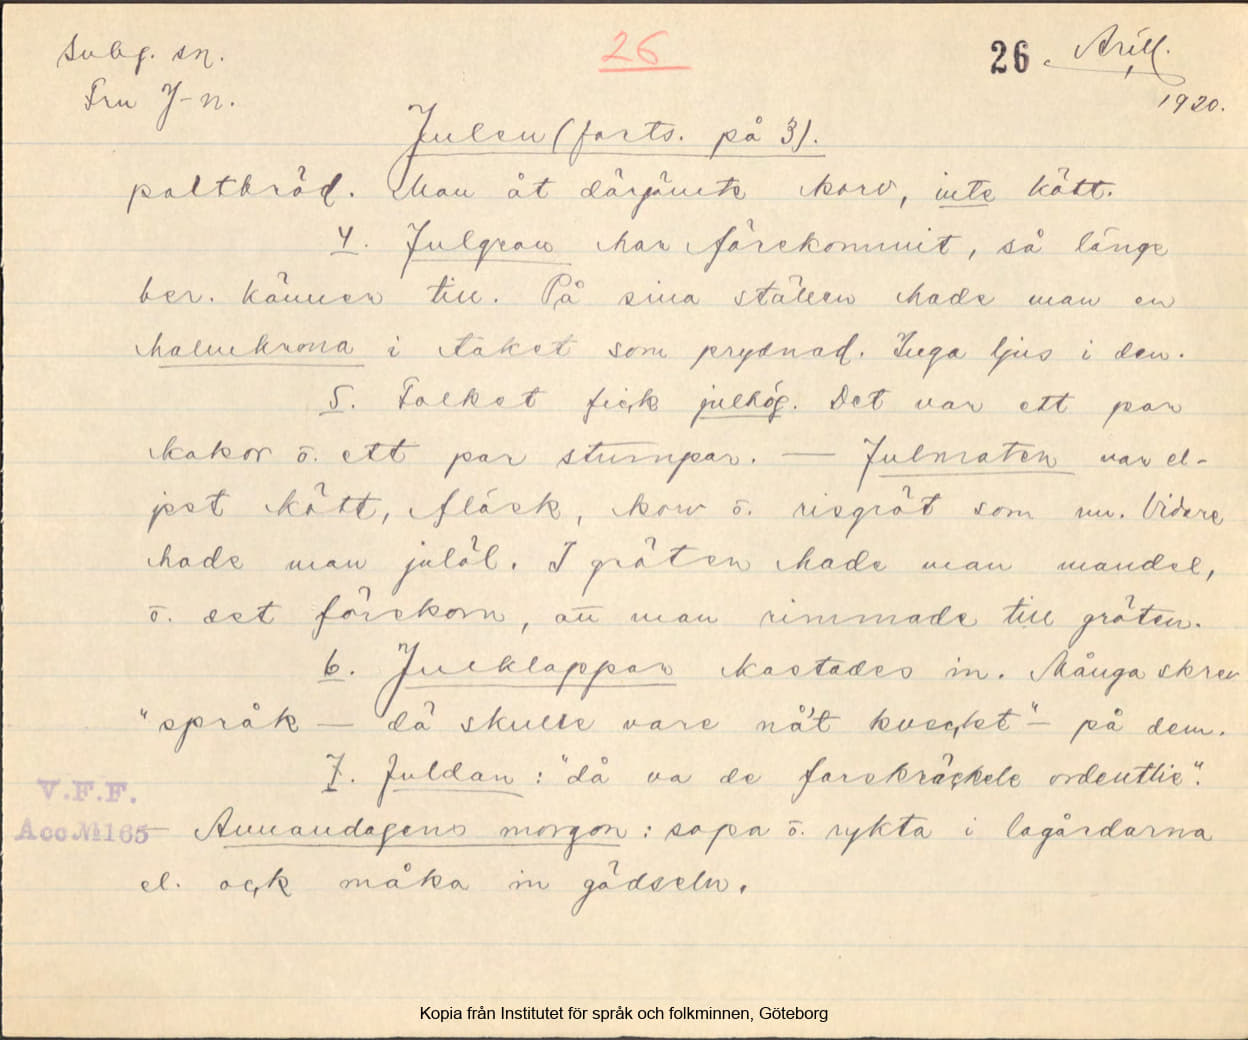 Subg. sn.
Fru J-n.
26
26 Arill.
1920.
Julen (forts. på 3).
paltbröd. Man åt därjämte korv, inte kött.
4. Julgran har förekommit, så länge
ber. känner till. På sina ställen hade man en
halmkrona i taket som prydnad. Inga ljus i den.
5. Folket fick julhög. Det var ett par
kakor o. ett par stumpar. — Julmaten var el-
jest kött, fläsk, korv o. risgröt som nu. Vidare
hade man julöl. I gröten hade man mandel,
o. det förekom, att man rimmade till gröten.
6. Julklappar kastades in. Många skrev
"språk — dä skulle vare nå't kvecket" — på dem.
7. Juldan: "då va de forskräckele ordentlie".
— Annandagens morgon: sopa o. rykta i lagårdarna
el. ock måka in gödseln.
V.F.F.
Acc. № 165
Kopia från Institutet för språk och folkminnen, Göteborg